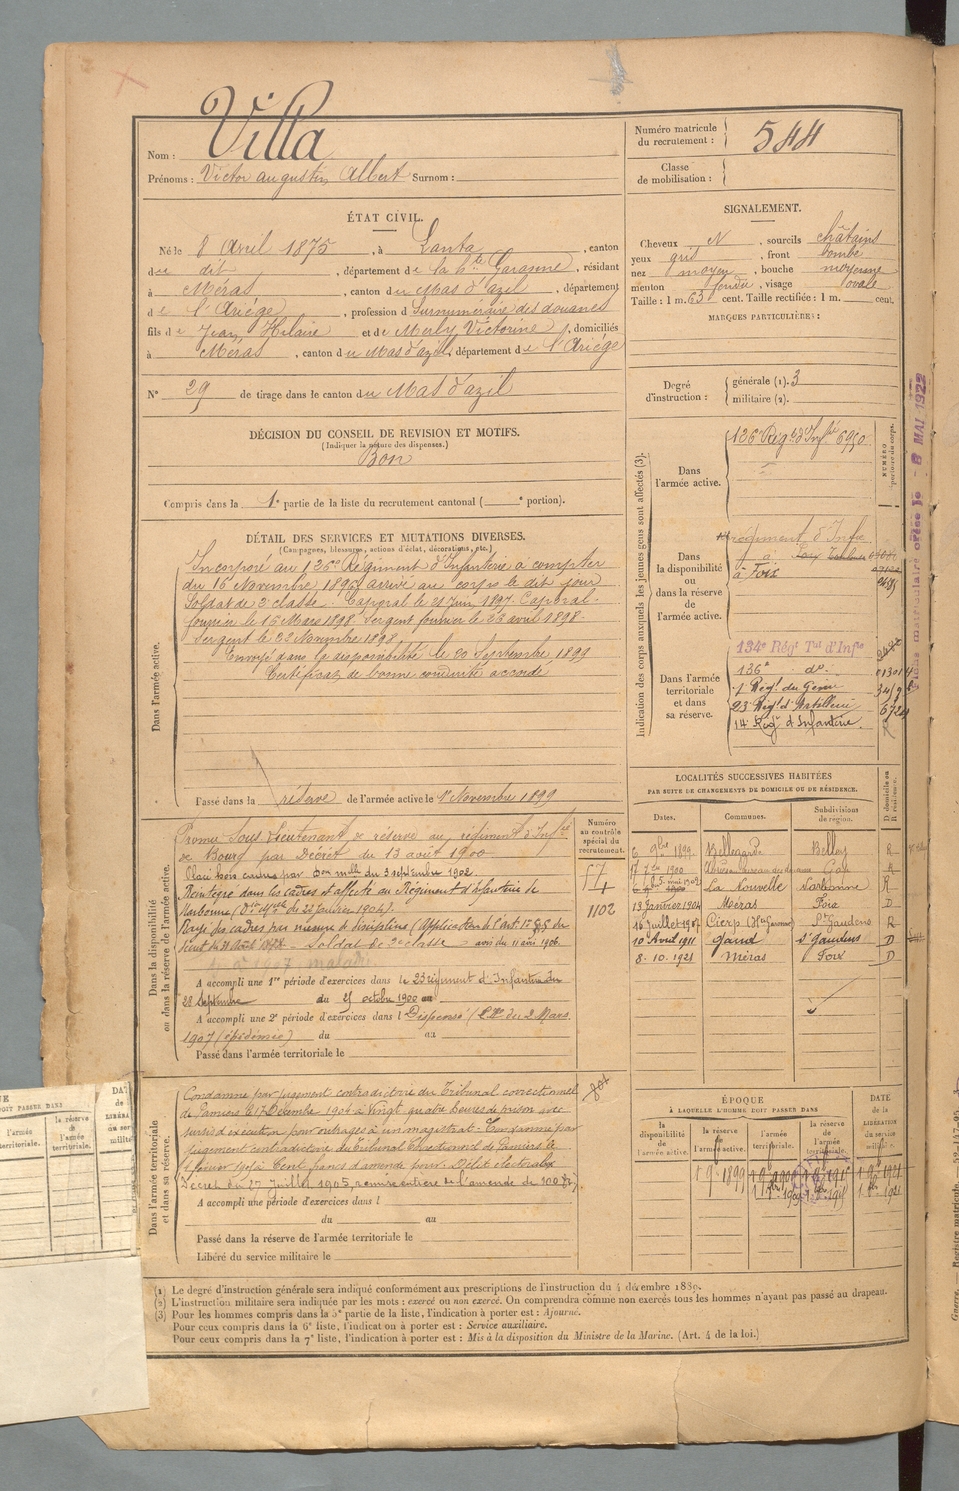 Nom : Villa
Prénoms : Victor Augustin Albert Surnom :
ÉTAT CIVIL.
Né le 8 Avril 1875, à Lanta, canton
du dit, département de la hte Garonne, résidant
à Méras, canton du Mas d'azil, département
de l'Ariège, profession d Surnuméraire des douanes
fils de Jean Hilaire et de Merly Victorine, domiciliés
à Méras, canton du Mas d'azil, département de l'Ariège
N° 29 de tirage dans le canton du Mas d'azil
DÉCISION DU CONSEIL DE REVISION ET MOTIFS.
(Indiquer la nature des dispenses.)
Bon
Compris dans la 1e partie de la liste du recrutement cantonal ( e portion).
DÉTAIL DES SERVICES ET MUTATIONS DIVERSES.
(Campagnes, blessures, actions d'éclat, décorations, etc.)
Dans l'armée active.
Incorporé au 126e Régiment d'Infanterie à compter
du 16 Novembre 1896, arrivé au corps le dit jour
Soldat de 2e classe. Caporal le 21 Juin 1897. Caporal
fourrier le 16 Mars 1898. Sergent fourrier le 23 avril 1898.
Sergent le 22 Novembre 1898.
Envoyé dans la disponibilité le 20 Septembre 1899
Certificat de bonne conduite accordé
Passé dans la réserve de l'armée active le 1er Novembre 1899
Dans la disponibilité
ou dans la réserve de l'armée active.
Promu Sous Lieutenant de réserve au régiment d'Infie
de Bourg par Décret du 13 août 1900
Placé hors cadres par Don mlle du 3 septembre 1902
Réintégré dans les cadres et affecté au Régiment d'infanterie de
Narbonne (Don Mlle du 22 Janvier 1904).
Rayé des cadres par mesure de discipline (Application de l'art.
Soldat de 2e classe
A accompli une 1re période d'exercices dans le 23 régiment d'Infanterie du
28 Septembre du 25 octobre 1900 au
A accompli une 2e période d'exercices dans l Dispensé ( du 2 Mars
1907 (épidémie) du au
Passé dans l'armée territoriale le
Numéro
au contrôle
spécial du
recrutement.
1102
Dans l'armée territoriale
et dans sa réserve.
Condamné par jugement contradictoire du Tribunal correctionnel
de Pamiers le 17 Décembre 1904 à vingt quatre heures de prison avec
sursis d'exécution pour outrages à un magistrat - Condamné par
jugement contradictoire du Tribunal Correctionnel de Pamiers le
à Cent francs d'amende pour Délit électoral
Décret du 27 Juillet 1905, remise entière de l'amende de 100 frs
A accompli une période d'exercices dans l
du au
Passé dans la réserve de l'armée territoriale le
Libéré du service militaire le
Numéro matricule
du recrutement : 544
Classe
de mobilisation :
SIGNALEMENT.
Cheveux N, sourcils châtains
yeux gris, front bombé
nez moyen, bouche moyenne
menton fendu, visage ovale
Taille : 1 m. 63 cent. Taille rectifiée : 1 m. cent.
MARQUES PARTICULIÈRES :
Degré
d'instruction :
générale (1). 3
militaire (2).
Indication des corps auxquels les jeunes gens sont affectés (3).
NUMÉRO
Dans
l'armée active.
126e Régt d'Infrie 6950
Dans
la disponibilité
ou
dans la réserve
de
l'armée active.
régiment d'Infie
à Foix
Dans l'armée
territoriale
et dans
sa réserve.
134e Régt Tal d'Infie
136e do
Régt du Génie
23 Régt d'Artillerie
14e Régt d'Infanterie
8 MAI 1922
LOCALITÉS SUCCESSIVES HABITÉES
PAR SUITE DE CHANGEMENTS DE DOMICILE OU DE RÉSIDENCE.
Dates. Communes. Subdivisions de région. D domicile ou R résidence.
6 9bre 1899 Bellegarde Belley R
1900 Gap R
La Nouvelle Narbonne R
13 Janvier 1904 Méras Foix D
16 Juillet 1907 Cierp (Hte Garonne) St Gaudens R
10 Avril 1911 Gaud St Gaudens D
8-10-1921 Méras Foix D
ÉPOQUE
À LAQUELLE L'HOMME DOIT PASSER DANS
la disponibilité de l'armée active. la réserve de l'armée active. l'armée territoriale. la réserve de l'armée territoriale.
DATE
de la
LIBÉRATION
du service
militaire.
(1) Le degré d'instruction générale sera indiqué conformément aux prescriptions de l'instruction du 4 décembre 1889.
(2) L'instruction militaire sera indiquée par les mots : exercé ou non exercé. On comprendra comme non exercés tous les hommes n'ayant pas passé au drapeau.
(3) Pour les hommes compris dans la 5e partie de la liste, l'indication à porter est : Ajourné.
Pour ceux compris dans la 6e liste, l'indication à porter est : Service auxiliaire.
Pour ceux compris dans la 7e liste, l'indication à porter est : Mis à la disposition du Ministre de la Marine. (Art. 4 de la loi.)